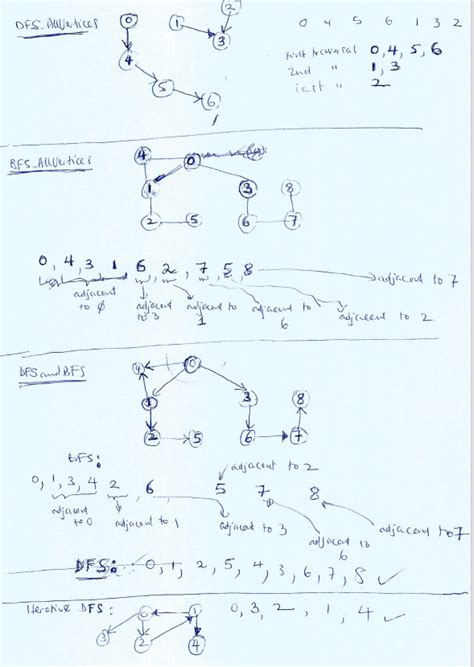 DFS_AllVertices
0 1 2 3 4 5 6
0 4 5 6 1 3 2
first traversal 0, 4, 5, 6
2nd " 1, 3
last " 2
BFS_AllVertices
4 0
1 3 8
2 5 6 7
0, 4, 3, 1, 6, 2, 7, 5, 8 adjacent to 7
adjacent to 0
adjacent to 3
adjacent to 1
adjacent to 6
adjacent to 2
DFS and BFS
4 0
1 3 8
2 5 6 7
BFS:
adjacent to 2
0, 1, 3, 4 2, 6, 5 7 8
adjacent to 0
adjacent to 1
adjacent to 3
adjacent to 6
adjacent to 7
DFS: 0, 1, 2, 5, 4, 3, 6, 7, 8 ✓
Iterative DFS: 0 1 0, 3, 2, 1, 4 ✓
3 2 4